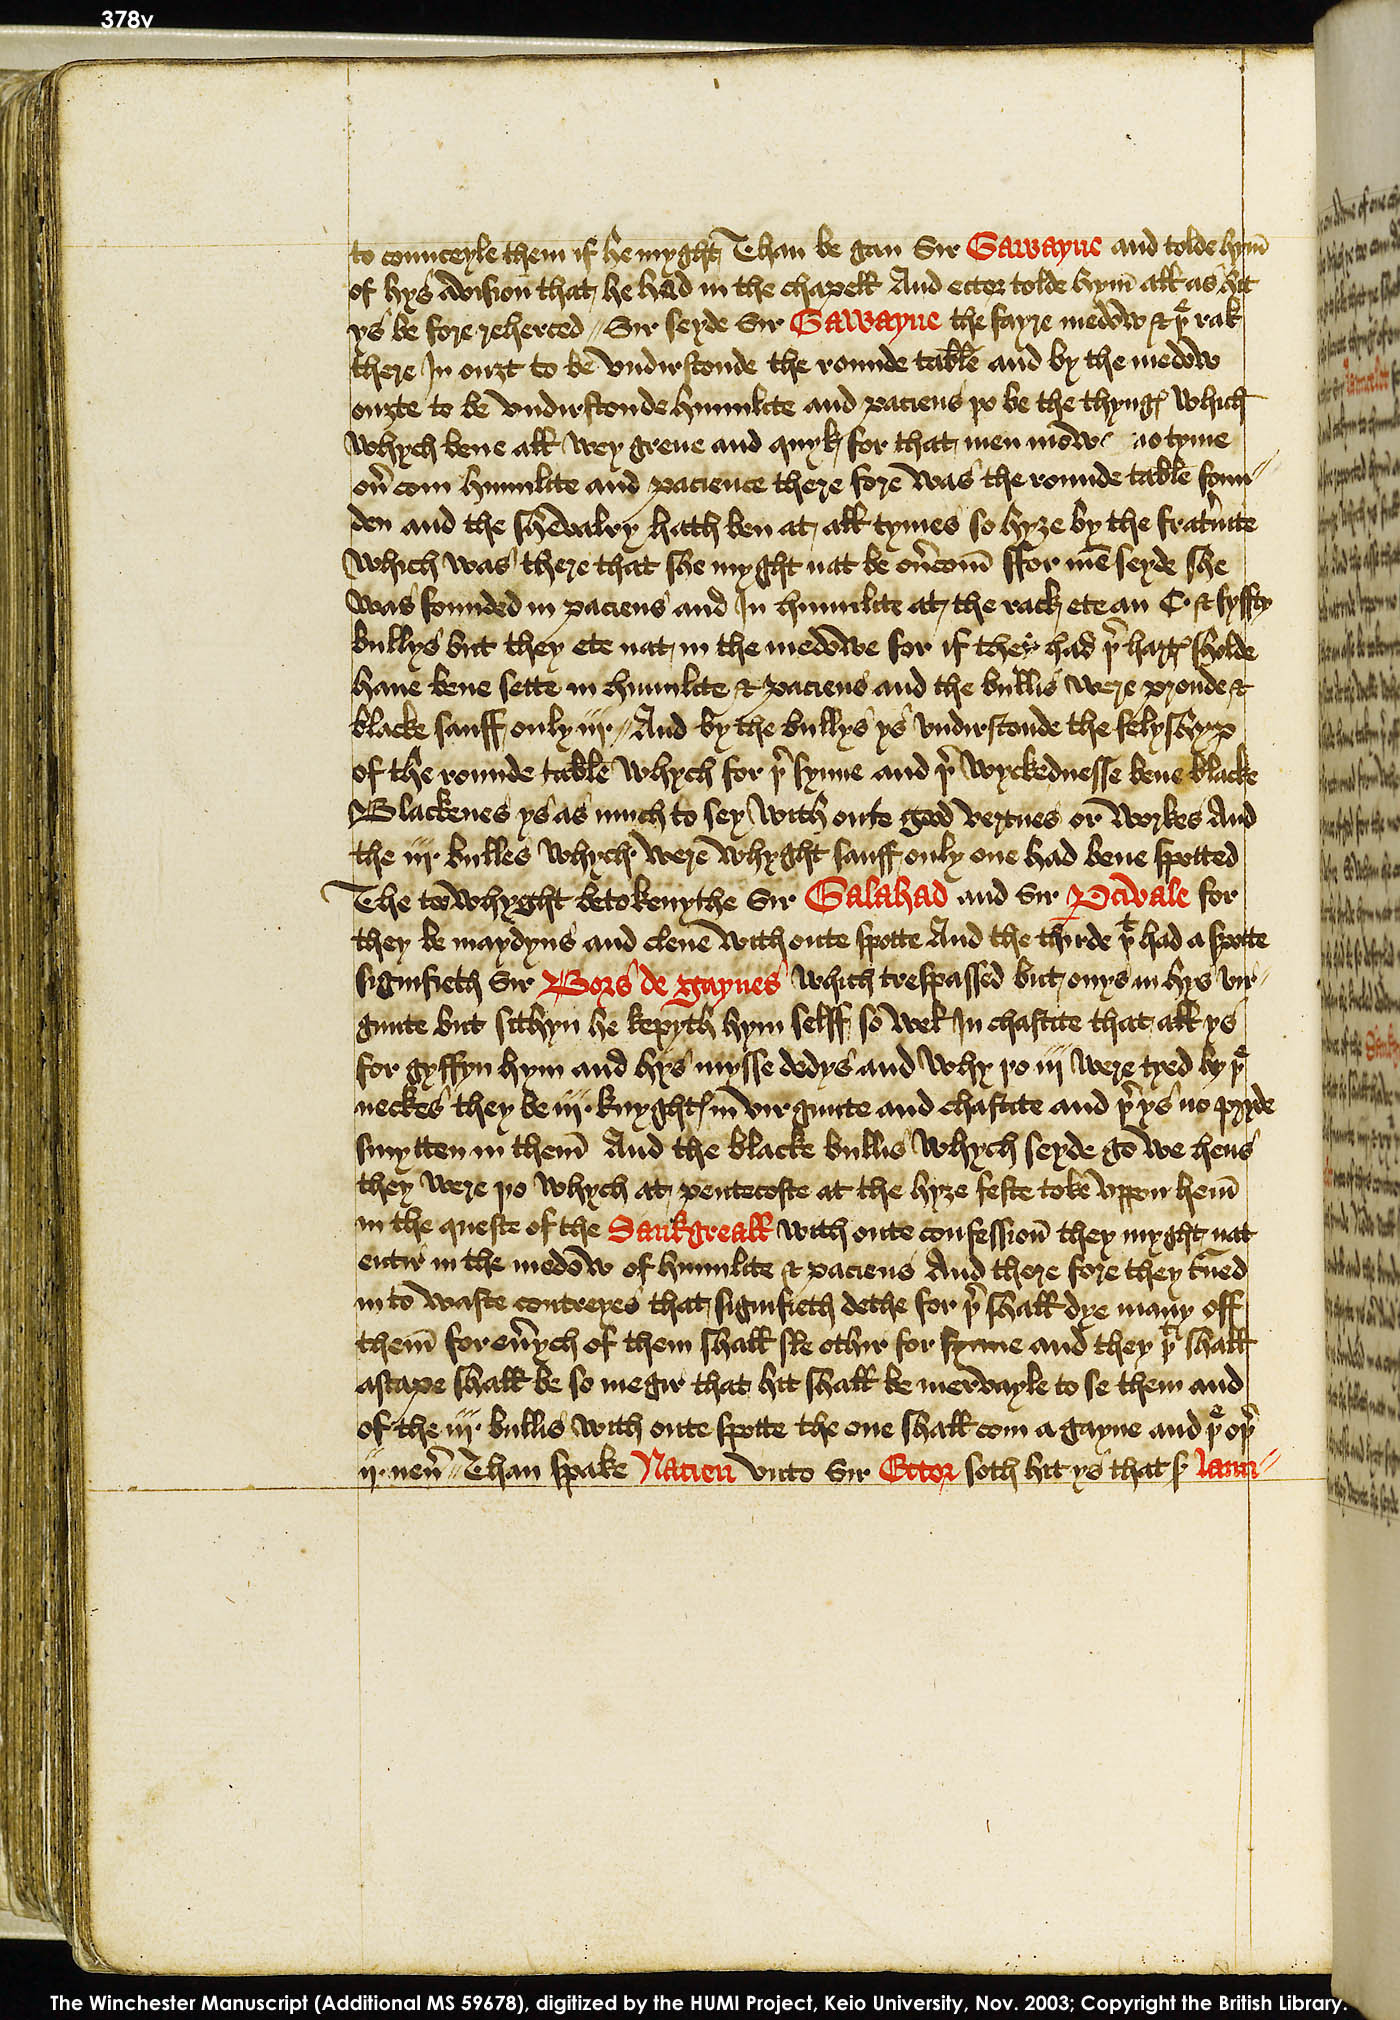 378v
to counceyle them if he myght Than be gan Sir Gawayne and tolde hym̄
of hys avision that he had in the chapell And ector tolde hym̄ all as hit
ys be fore reherced // Sir seyde Sir Gawayne the fayre medow & þͤ rak
there In ouȝt to be vndirstonde the rounde table and by the medow
ouȝte to be vndirstonde humilite and paciens þo be the thyngꝭ which
whych bene all wey grene and quyk for that men mow no tyme
ou̾ com humilite and pacience there fore was the rounde table foun //
den and the shevalry hath ben at all tymes so hyȝe by the frat̾nite
which was there that she myght nat be ou̾com̄ ffor mē seyde she
was founded in paciens and In humilite at the rack ete an C · & fyffty
bullys but they ete nat in the medowe for if they had þ̾ hartꝭ sholde
haue bene sette in humilite & paciens and the bullis were proude &
blacke sauff only iij · // And by the bullys ys vndirstonde the felyshyp
of the rounde table whych for þ̾ synne and þ̾ wyckednesse bene blacke
Blackenes ys as much to sey with oute good vertues or workes And
the iij · bulles whych were whyght sauff only one had bene spotted
The too whyght betokenythe Sir Galahad and Sir P̱civale for
they be maydyns and clene with oute spotte And the thirde þͭ had a spotte
signifieth Sir Bors de Gaynes which trespassed but onys in hys vir //
ginite but sithyn he kepyth hym selff so well In chastite that all ys
for gyffyn hym and hys mysse dedys and why þo iij were tyed by þͤ
neckes they be iij · knyghtꝭ in virginite and chastite and þ̾ ys no pryde
smytten in them̄ And the blacke bullis whych seyde go we hens
they were þo whych at pentecoste at the hyȝe feste toke vppon hem̄
in the queste of the Sankgreall with oute confession̄ they myght nat
entir in the medow of humilite & paciens And there fore they t̾ned
in to waste contreyes that signifieth dethe for þ̾ shall dye many off
them̄ for eu̾ych of them shall sle othir for synne and they þͭ shall
ascape shall be so megir that hit shall be mervayle to se them and
of the iij · bullis with oute spotte the one shall com a gayne and þͤ oþ̾
ij · neu̾ // Than spake Nacien vnto Sir Ector soth hit ys that sͬ laun //
The Winchester Manuscript (Additional MS 59678), digitized by the HUMI Project, Keio University, Nov. 2003; Copyright the British Library.